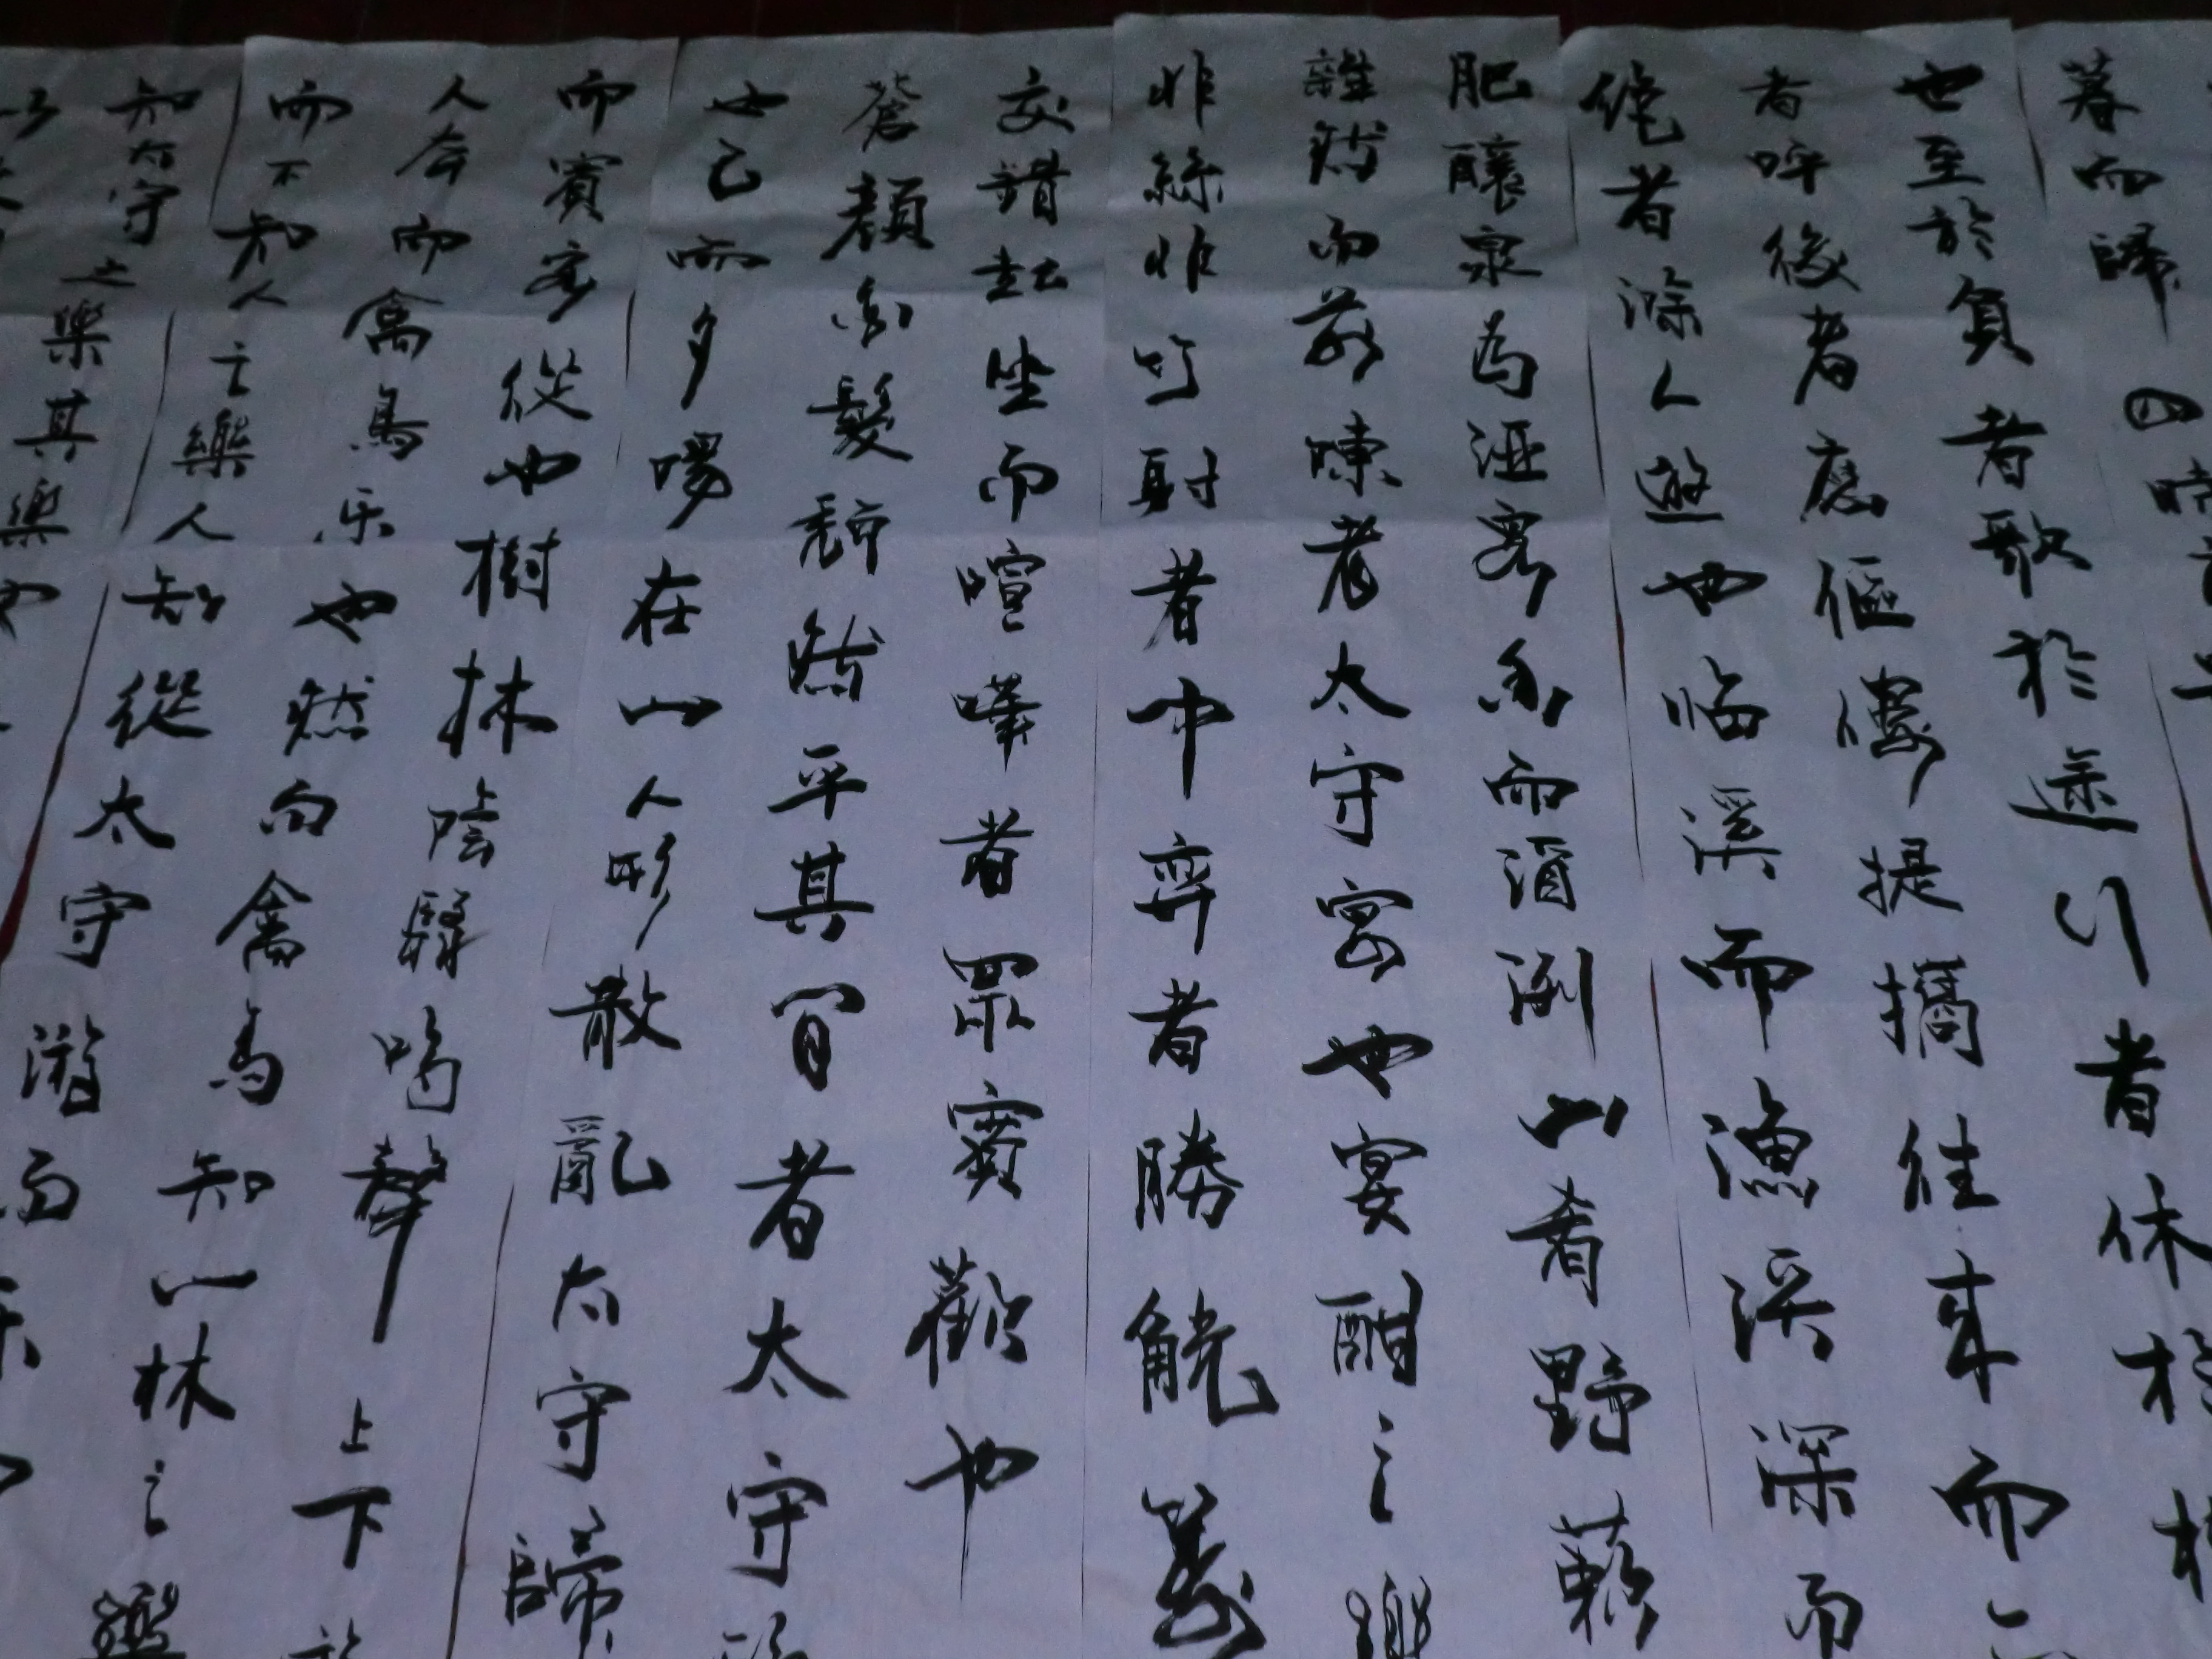 暮而歸四時
也至於負者歌於途行者休於
者呼後者應傴僂提攜往來而
絕者滁人遊也临溪而漁溪深而
肥釀泉為酒香而酒洌山肴野蔌
雜然而前陳者太守宴也宴酣之樂
非絲非竹射者中弈者勝觥籌
交錯起坐而喧嘩者眾賓歡也
蒼顏白髮頹然乎其間者太守
也已而夕陽在山人形散亂太守歸
而賓客從也樹林陰翳鳴聲上下
人去而禽鳥乐也然而禽鳥知山林之樂
而不知人之樂人知從太守游而乐
知太守之樂其樂也